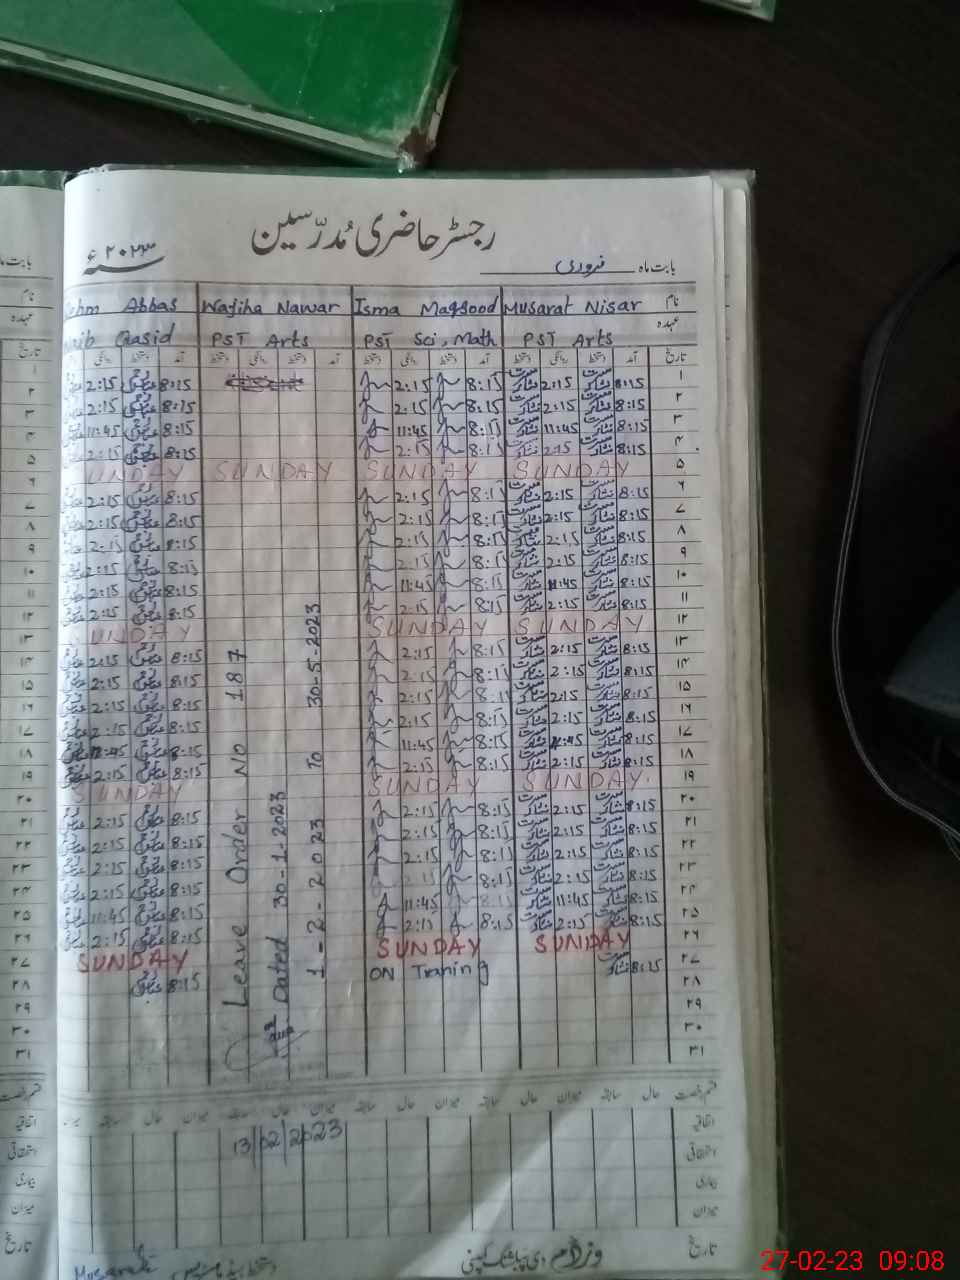 رجسٹر حاضری مُدرّسین
سنہ ۲۰۲۳ء
بابت ماہ فروری
نام Musarat Nisar Isma Maqsood Wajiha Nawar Abbas
عہدہ PST Arts PST Sci, Math PST Arts Qasid
تاریخ آمد دستخط روانگی دستخط آمد دستخط روانگی دستخط آمد دستخط روانگی دستخط آمد دستخط روانگی
۱ 8:15 2:15 8:15 2:15 8:15 2:15
۲ 8:15 2:15 8:15 2:15 8:15 2:15
۳ 8:15 11:45 8:15 11:45 8:15 11:45
۴ 8:15 2:15 8:15 2:15 8:15 2:15
۵ SUNDAY SUNDAY SUNDAY SUNDAY
۶ 8:15 2:15 8:15 2:15 8:15 2:15
۷ 8:15 2:15 8:15 2:15 8:15 2:15
۸ 8:15 2:15 8:15 2:15 8:15 2:15
۹ 8:15 2:15 8:15 2:15 8:15 2:15
۱۰ 8:15 11:45 8:15 11:45 8:15 2:15
۱۱ 8:15 2:15 8:15 2:15 8:15 2:15
۱۲ SUNDAY SUNDAY SUNDAY
۱۳ 8:15 2:15 8:15 2:15 8:15 2:15
۱۴ 8:15 2:15 8:15 2:15 8:15 2:15
۱۵ 8:15 2:15 8:15 2:15 8:15 2:15
۱۶ 8:15 2:15 8:15 2:15 8:15 2:15
۱۷ 8:15 11:45 8:15 11:45 8:15 11:45
۱۸ 8:15 2:15 8:15 2:15 8:15 2:15
۱۹ SUNDAY SUNDAY SUNDAY
۲۰ 8:15 2:15 8:15 2:15 8:15 2:15
۲۱ 8:15 2:15 8:15 2:15 8:15 2:15
۲۲ 8:15 2:15 8:15 2:15 8:15 2:15
۲۳ 8:15 2:15 8:15 2:15 8:15 2:15
۲۴ 8:15 11:45 8:15 11:45 8:15 11:45
۲۵ 8:15 2:15 8:15 2:15 8:15 2:15
۲۶ SUNDAY SUNDAY SUNDAY
۲۷ 8:15 ON Traning 8:15
۲۸
۲۹
۳۰
۳۱
Leave Order NO 187
Dated 30-1-2023
1-2-2023 To 30-5-2023
قسم رخصت حال سابقہ میزان حال سابقہ میزان حال سابقہ میزان حال سابقہ میزان حال سابقہ
اتفاقیہ
13/02/2023
استحقاقی
بیماری
میزان
تاریخ
وزڈم دی پبلشنگ کمپنی
دستخط ہیڈ ماسٹر
Musarat
27-02-23 09:08